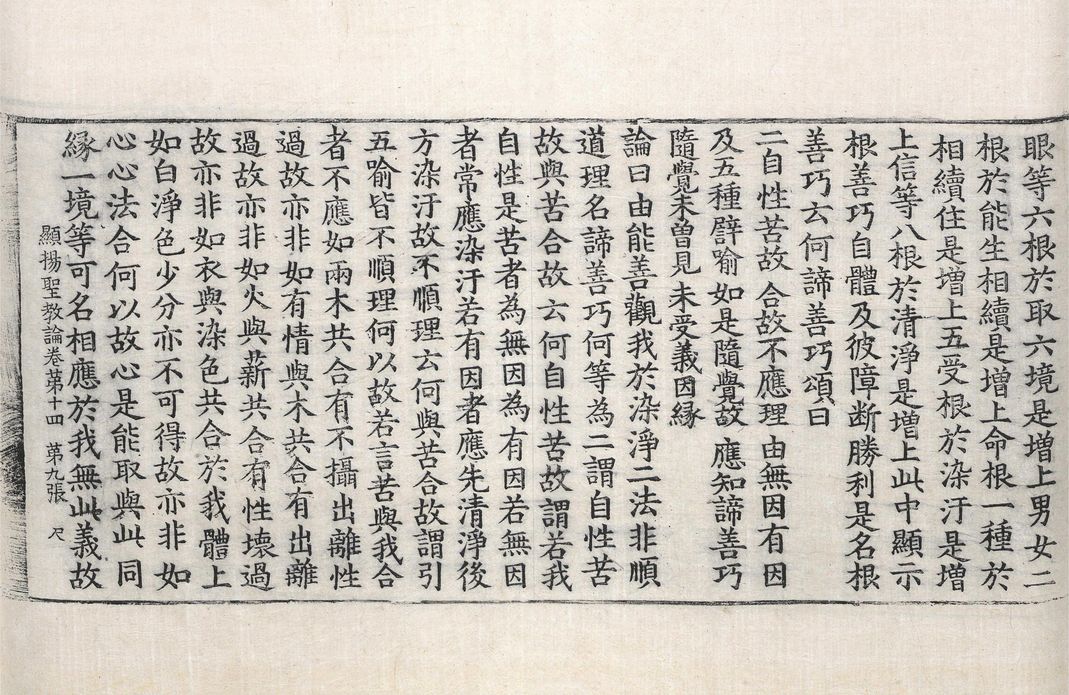 眼等六根於取六境是增上男女二
根於能生相續是增上命根一種於
相續住是增上五受根於染汙是增
上信等八根於清淨是增上此中顯示
根善巧自體及彼障断勝利是名根
善巧云何諦善巧頌曰
二自性苦故 合故不應理 由無因有因
及五種譬喻 如是隨覺故 應知諦善巧
隨覺未曾見 未受義因緣
論曰由能善觀我於染淨二法非順
道理名諦善巧何等為二謂自性苦
故與苦合故云何自性苦故謂若我
自性是苦者為無因為有因若無因
者常應染汙若有因者應先清淨後
方染汙故不順理云何與苦合故謂引
五喻皆不順理何以故若言苦與我合
者不應如兩木共合有不攝出離性
過故亦非如有情與木共合有出離
過故亦非如火與薪共合有性壞過
故亦非如衣與染色共合於我體上
如白淨色少分亦不可得故亦非如
心心法合何以故心是能取與此同
緣一境等可名相應於我無此義故
顯揚聖教論卷苐十四 苐九張 尺